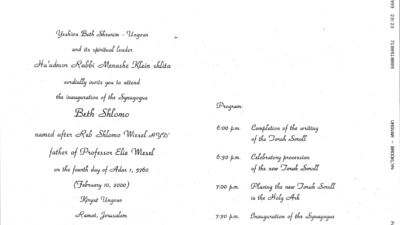 Yeshiva Beth Shearim - Ungvar
and its spiritual leader
Ha'admor Rabbi Menashe Klein shlita
cordially invite you to attend
the inauguration of the Synagogue
Beth Shlomo
named after Reb Shlomo Wiesel
father of Professor Elie Wiesel
on the fourth day of Adar 1, 5760
(February 10, 2000)
Kiryat Ungvar
Ramot, Jerusalem
Program:
6:00 p.m. Completion of the writing
of the Torah Scroll
6:30 p.m. Celebratory procession
of the new Torah Scroll
7:00 p.m. Placing the new Torah Scroll
in the Holy Ark
7:30 p.m. Inauguration of the Synagogue
20:23
UNGVAR - BROOKLYN